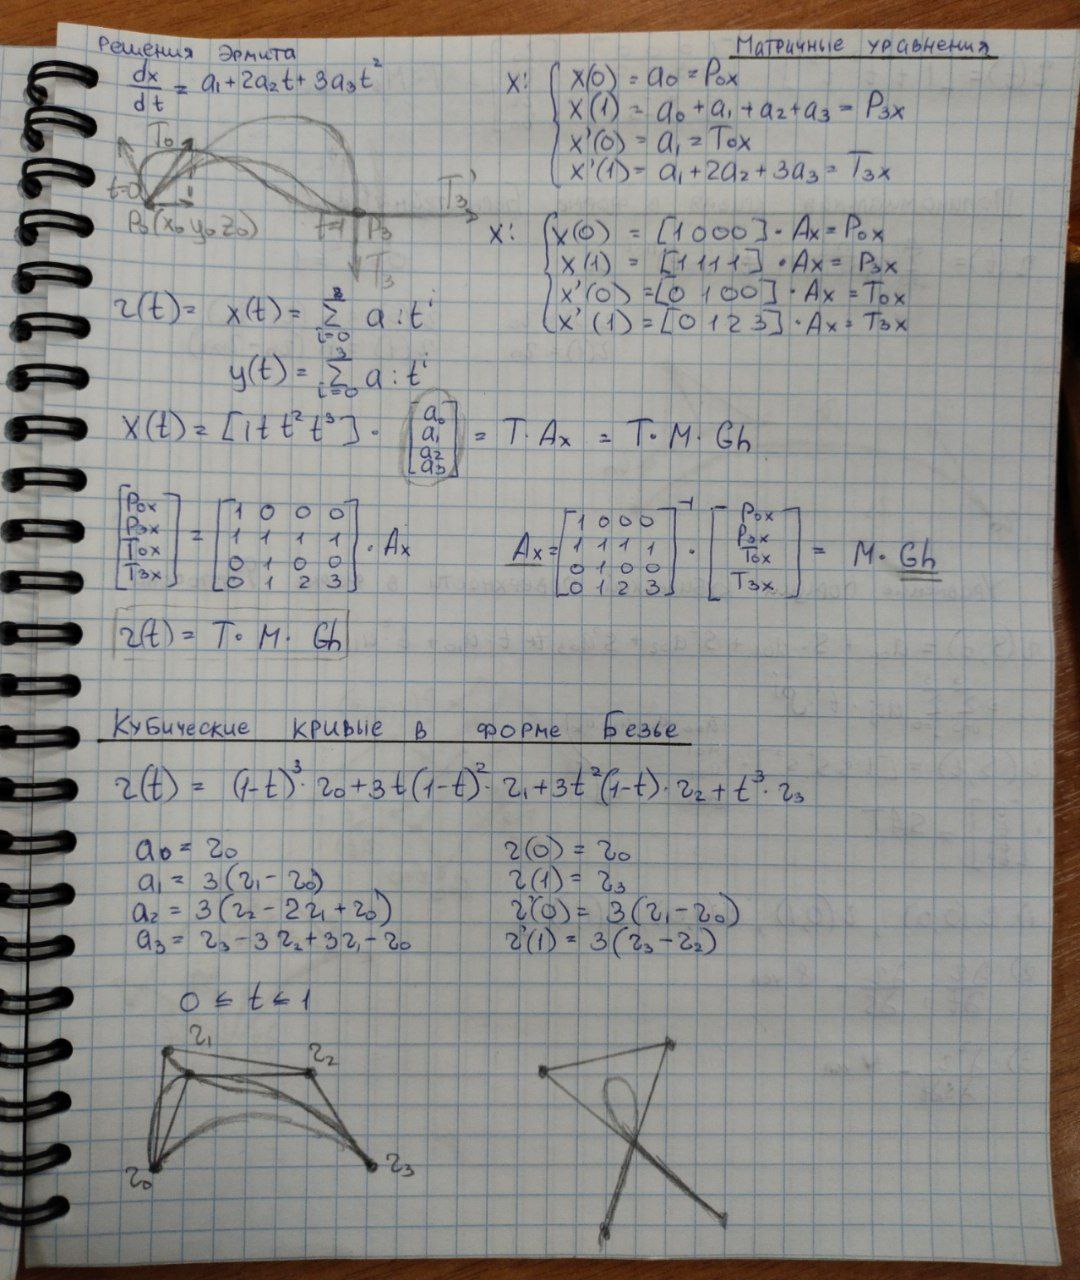 Решения Эрмита
dx/dt = a₁+2a₂t+3a₃t²
T₀
t=0
P₀(x₀ y₀ z₀)
t=1 P₃
T₃'
T₃
Матричные уравнения
x: { x(0) = a₀ = P₀x
x(1) = a₀+a₁+a₂+a₃ = P₃x
x'(0) = a₁ = T₀x
x'(1) = a₁+2a₂+3a₃ = T₃x
x: { x(0) = [1 0 0 0] · Ax = P₀x
x(1) = [1 1 1 1] · Ax = P₃x
x'(0) = [0 1 0 0] · Ax = T₀x
x'(1) = [0 1 2 3] · Ax = T₃x
r(t) = x(t) = Σ i=0 3 aᵢtⁱ
y(t) = Σ i=0 3 aᵢtⁱ
x(t) = [1 t t² t³] · [a₀ a₁ a₂ a₃] = T · Ax = T · M · Gh
[P₀x P₃x T₀x T₃x] = [1 0 0 0; 1 1 1 1; 0 1 0 0; 0 1 2 3] · Ax
Ax = [1 0 0 0; 1 1 1 1; 0 1 0 0; 0 1 2 3]⁻¹ · [P₀x P₃x T₀x T₃x] = M · Gh
r(t) = T · M · Gh
Кубические кривые в форме Безье
r(t) = (1-t)³ · r₀ + 3t(1-t)² · r₁ + 3t²(1-t) · r₂ + t³ · r₃
a₀ = r₀
a₁ = 3(r₁ - r₀)
a₂ = 3(r₂ - 2r₁ + r₀)
a₃ = r₃ - 3r₂ + 3r₁ - r₀
r(0) = r₀
r(1) = r₃
r'(0) = 3(r₁ - r₀)
r'(1) = 3(r₃ - r₂)
0 ≤ t ≤ 1
r₁
r₂
r₀
r₃